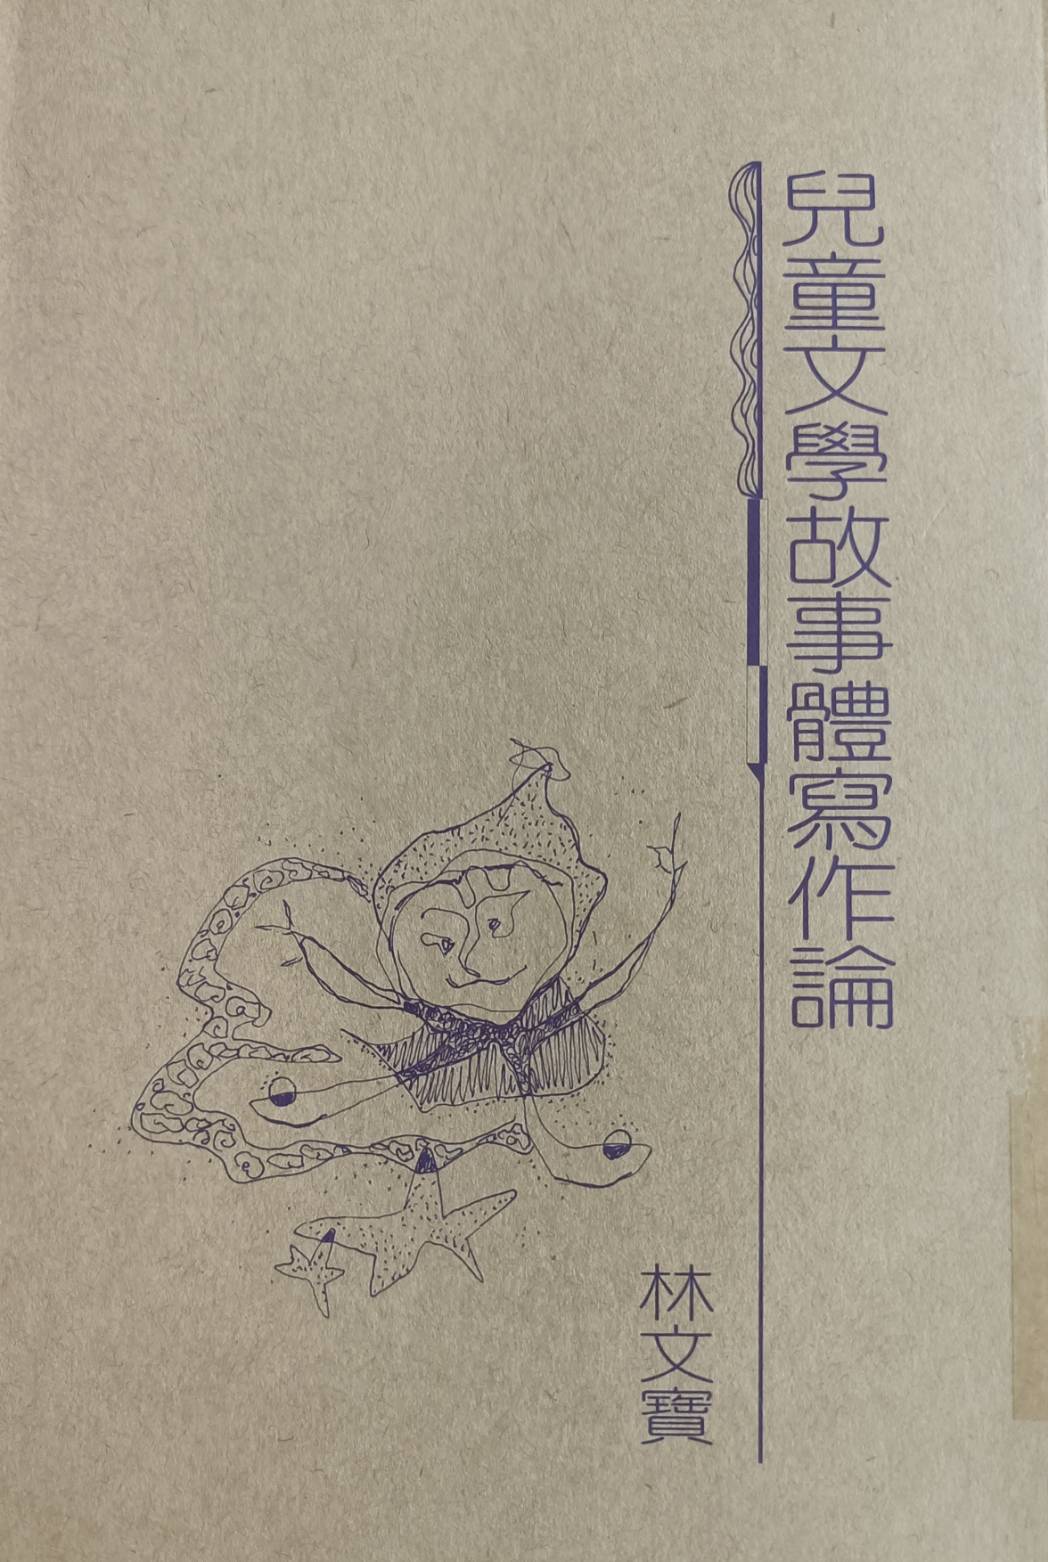 兒童文學故事體寫作論
林文寶